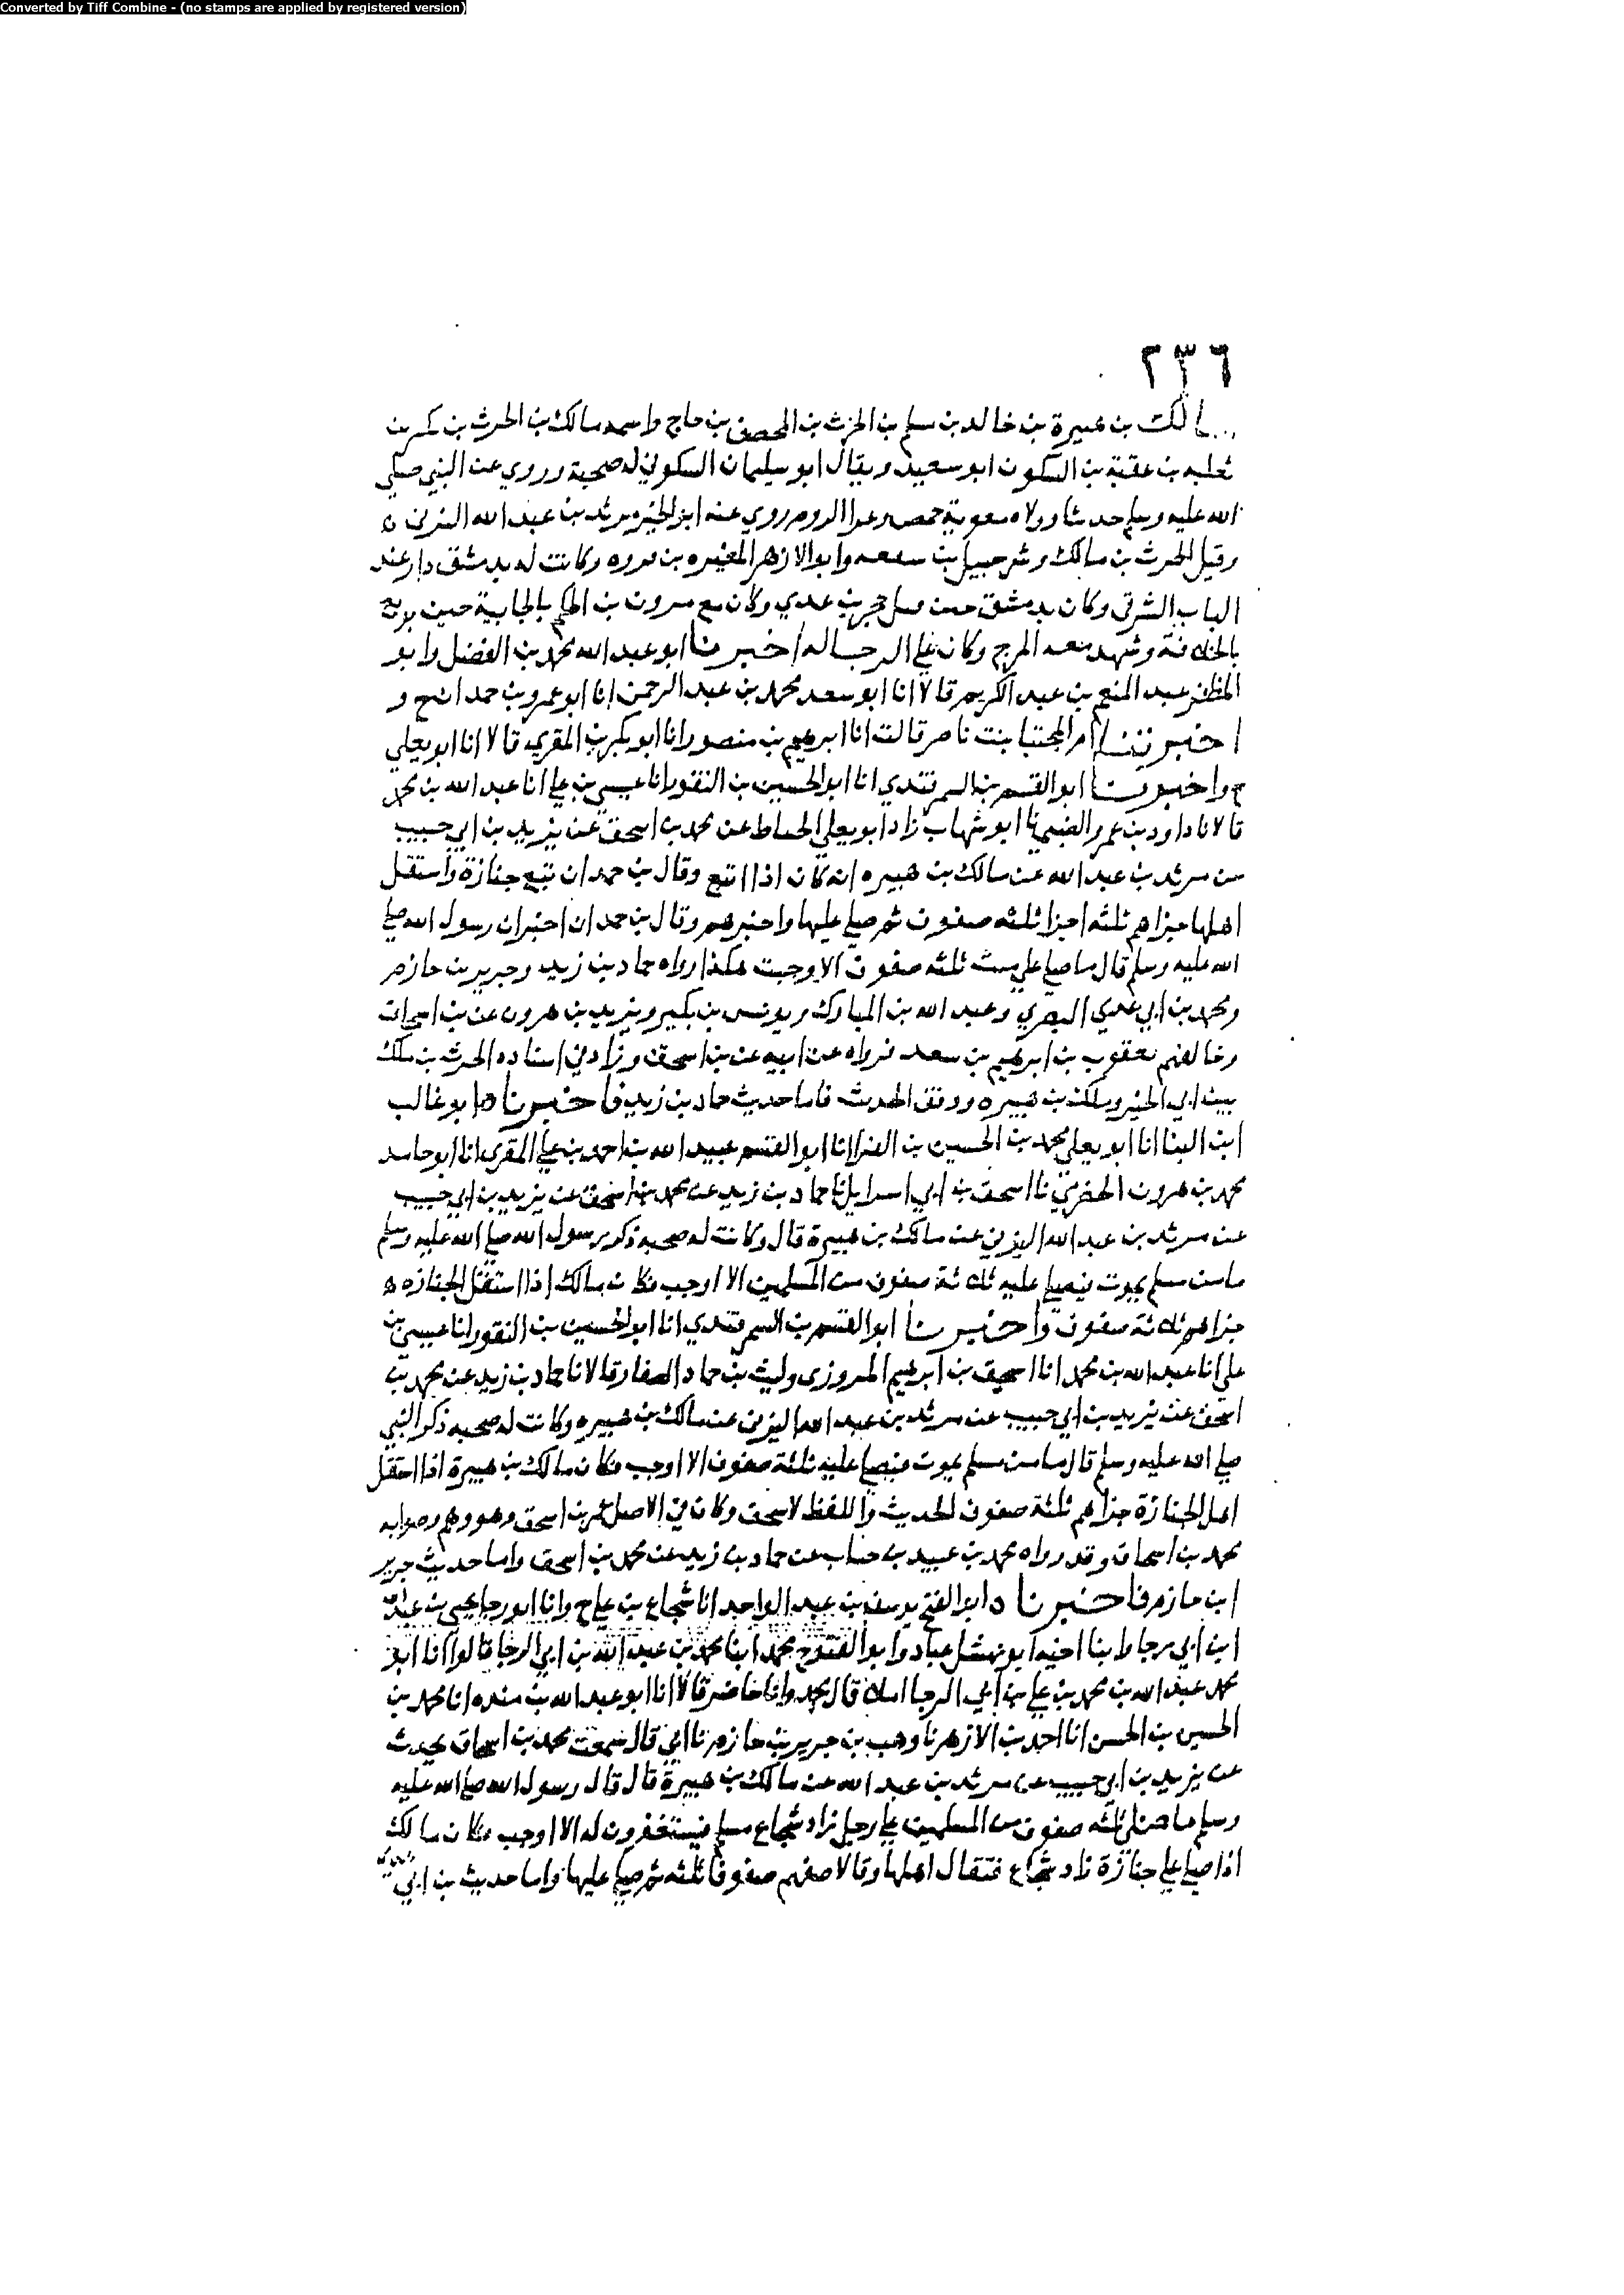 Converted by Tiff Combine - (no stamps are applied by registered version)
٢٣٦
مالك بن هبيرة بن خالد بن سلم بن الحرث بن المحصف بن حاج واسمه مالك بن الحرث بن بكر بن
ثعلبه بن عقبة بن السكون ابو سعيد ويقال ابو سليمان السكوني له صحبة وروي عن النبي صلى
الله عليه وسلم حديثا وولاه معوية حمص وغزا الروم روي عنه ابو الخير مرثد بن عبد الله اليزني
وقيل الحرث بن مالك وشرحبيل بن وابو الازهر المغيره بن فروه وكانت له بدمشق دار عند
الباب الشرقي وكان بدمشق حين حجر بن عدي وكان مع مرون بن الحكم بالجابية حين بويع
بالخلافة وشهد معه المرج وكان علي الرجاله اخبرنا ابو عبد الله محمد بن الفضل وابو
المظفر عبد المنعم بن عبد الكريم قالا انا ابو سعد محمد بن عبد الرحمن انا ابو عمرو بن حمدان ح و
اخبرتنا ام المجتبا بنت ناصر قالت انا ابرهيم بن منصور انا ابو بكر بن المقري قالا انا ابو يعلي
ح واخبرنا ابو القسم بن السمرقندي انا ابو الحسين بن النقور انا عيسي بن علي انا عبد الله بن محمد
قالا نا داود بن عمرو الضبي نا ابو شهاب زاد ابو يعلي الحناط عن محمد بن اسحق عن يزيد بن ابي حبيب
عن مرثد بن عبد الله عن مالك بن هبيره انه كان اذا اتبع وقال بن حمدان تبع جنازة واستقل
اهلها جزاهم ثلثه اجزا ثلثه صفوف ثم صلي عليها واخبرهم وقال بن حمدان اخبر ان رسول الله صلي
الله عليه وسلم قال ما صلي علي ميت ثلثه صفوف الا وجبت هكذا رواه حماد بن زيد وجرير بن حازم
ومحمد بن ابي عدي البصري وعبد الله بن المبارك ويونس بن بكير ويزيد بن هرون عن بن اسحاق
وخالفهم يعقوب بن ابرهيم بن سعد فرواه عن ابيه عن بن اسحق وزاد في اسناده الحرث بن ملك
بين ابي الخير وملك بن هبيره ووقف الحديث فاما حديث حماد بن زيد فاخبرناه ابو غالب
ابن البنا انا ابو يعلي محمد بن الحسين بن الفرا انا ابو القسم عبيد الله بن احمد بن علي المقري انا ابو حامد
محمد بن هرون الحضرمي نا اسحق بن ابي اسرايل نا حماد بن زيد عن محمد بن اسحق عن يزيد بن ابي حبيب
عن مرثد بن عبد الله اليزني عن مالك بن هبيرة قال وكانت له صحبه ذكر رسول الله صلي الله عليه وسلم
ما من مسلم يموت فيصلي عليه ثلاثة صفوف من المسلمين الا اوجب فكان مالك اذا استقل الجنازه ه
جزاهم ثلاثة صفوف واخبرنا ابو القسم بن السمرقندي انا ابو الحسين بن النقور انا عيسي بن
علي انا عبد الله بن محمد انا اسحق بن ابرهيم المروزي وليث بن حماد الصفار قالا نا حماد بن زيد عن محمد بن
اسحق عن يزيد بن ابي حبيب عن مرثد بن عبد الله اليزني عن مالك بن هبيره وكانت له صحبه ذكر النبي
صلي الله عليه وسلم قال ما من مسلم يموت فيصلي عليه ثلثة صفوف الا اوجب فكان مالك بن هبيرة اذا استقل
اهل الجنازة جزاهم ثلثة صفوف الحديث واللفظ لاسحق وكان في الاصل عمر بن اسحق وهو وهم وصوابه
محمد بن اسحاق وقد رواه محمد بن عبيد بن حساب عن حماد بن زيد عن محمد بن اسحق واما حديث جرير
ابن حازم فاخبرناه ابو الفتح يوسف بن عبد الواحد انا شجاع بن علي ح وانا ابو رجا يحيي بن عبد الله
ابن ابي رجا وابنا اخيه ابو نهشل عباد وابو الفتوح محمد ابنا محمد بن عبد الله بن ابي الرجا قالوا انا ابو
محمد عبد الله بن محمد بن علي بن ابي الرجا املا قال محمد وانا حاضر قالا انا ابو عبد الله بن منده انا محمد بن
الحسين بن الحسن انا احمد بن الازهر نا وهب بن جرير بن حازم نا ابي قال سمعت محمد بن اسحاق يحدث
عن يزيد بن ابي حبيب عن مرثد بن عبد الله عن مالك بن هبيرة قال قال رسول الله صلي الله عليه
وسلم ما صلي ثلثه صفوف من المسلمين علي رجل زاد شجاع مسلم فيستغفرون له الا اوجب فكان مالك
اذا صلي علي جنازة زاد شجاع فتقال اهلها وقالا صفهم صفوفا ثلثه ثم صلي عليها واما حديث بن ابي